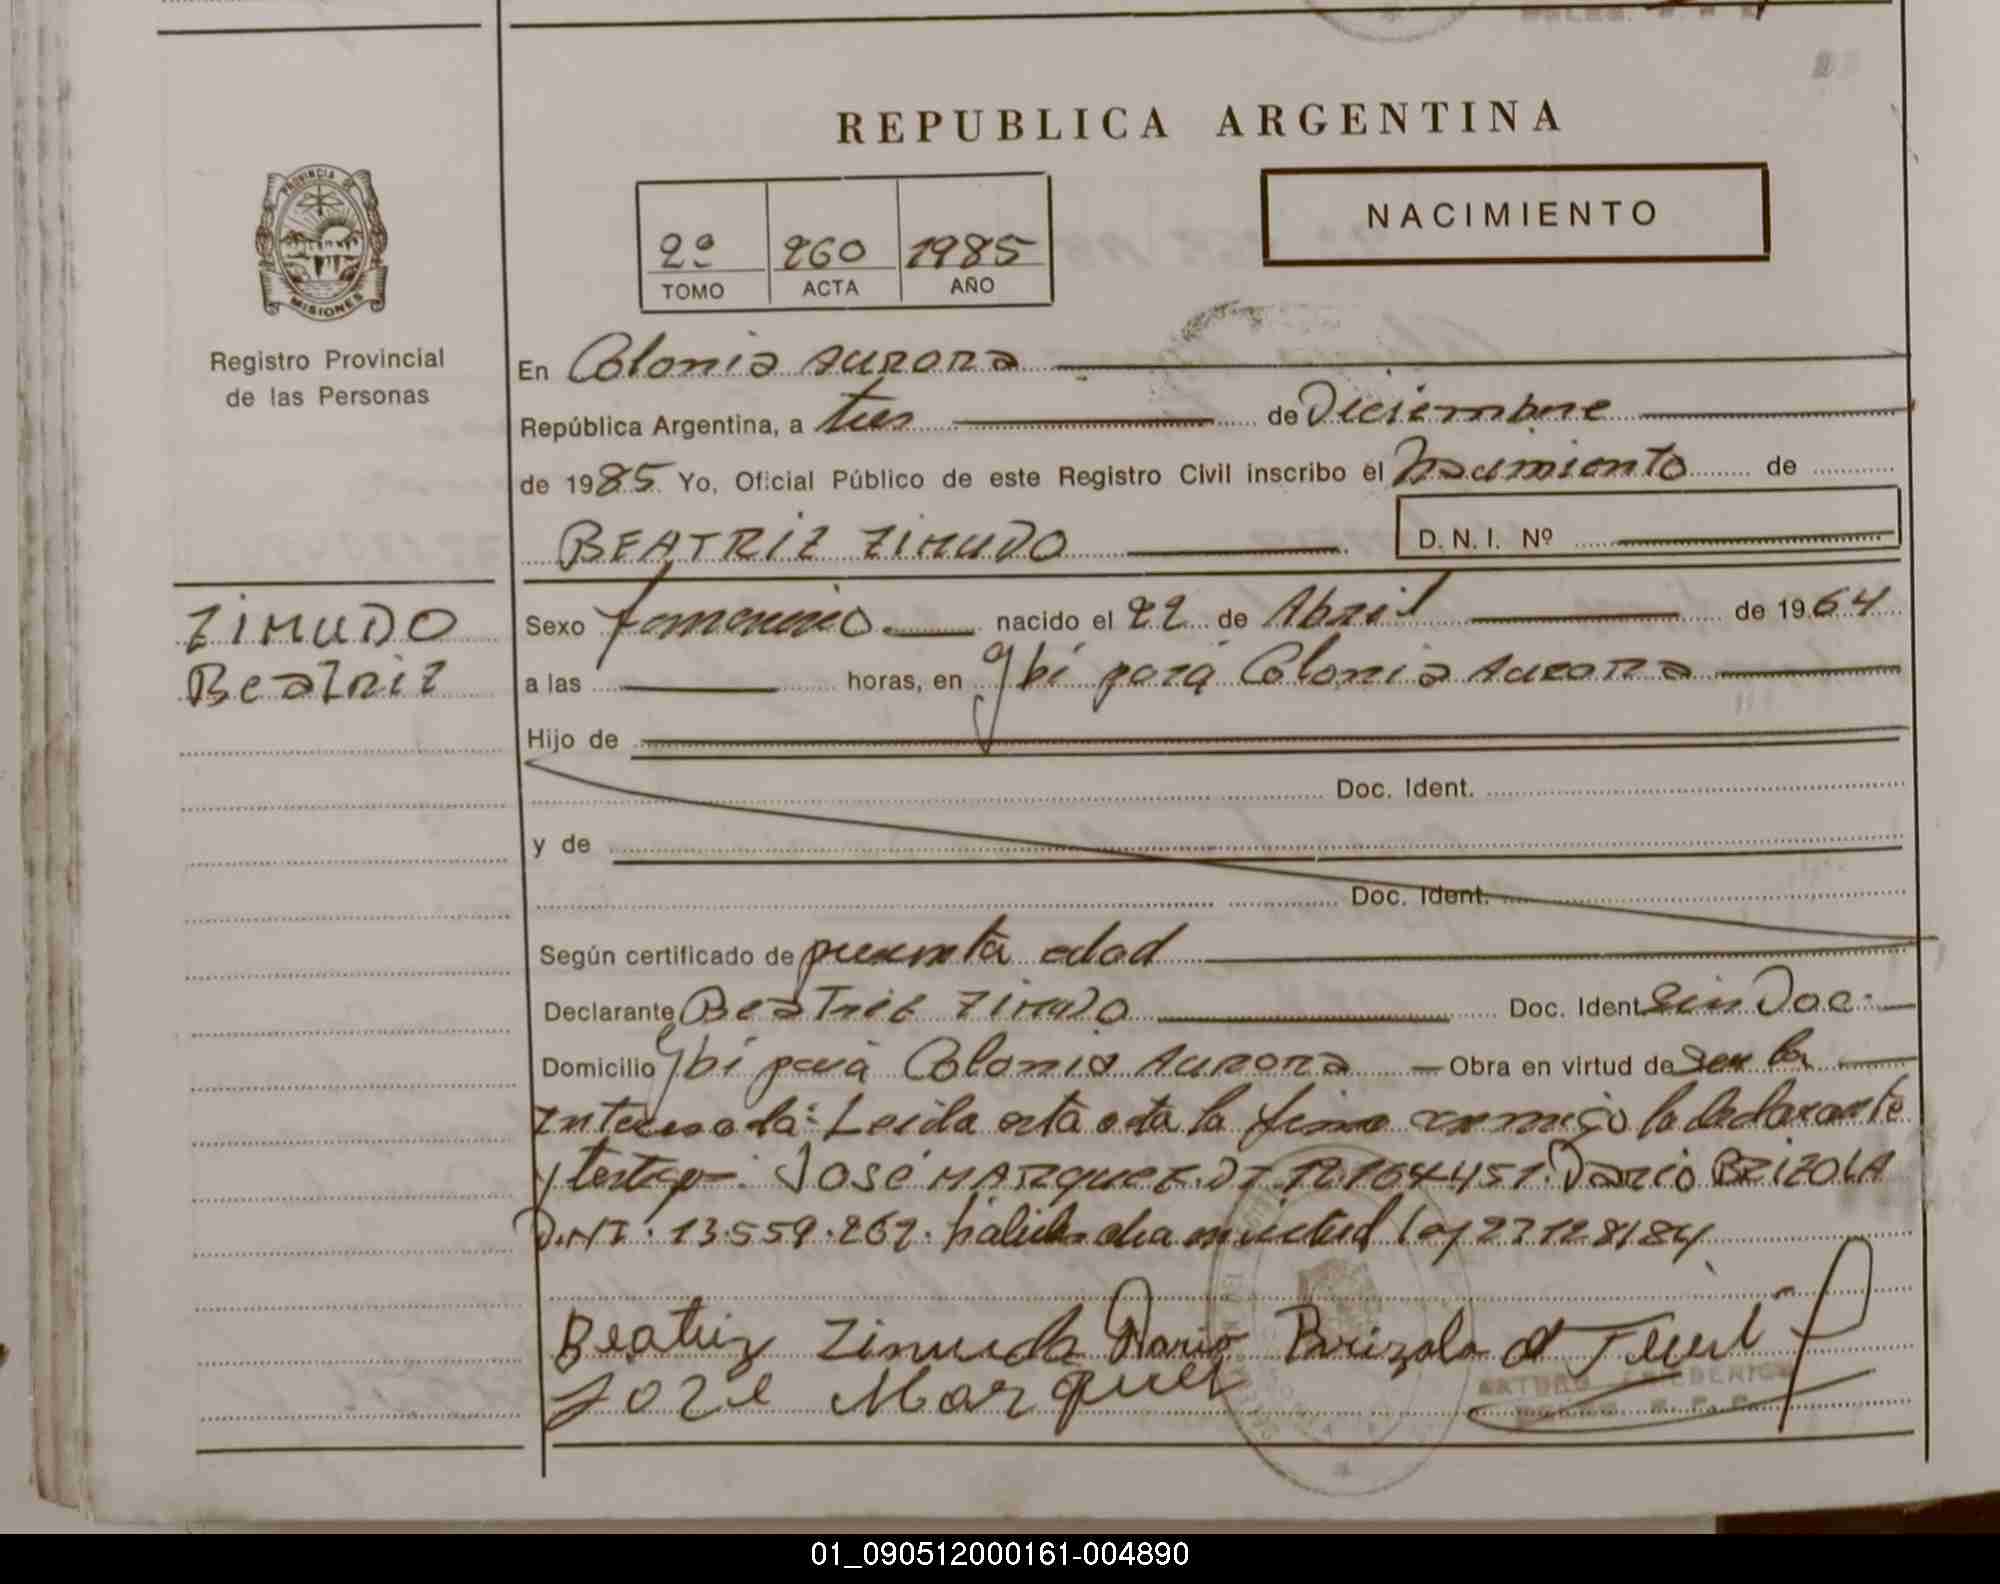 REPUBLICA ARGENTINA
PROVINCIA DE
MISIONES
Registro Provincial
de las Personas
2º 260 1985
TOMO ACTA AÑO
NACIMIENTO
En Colonia Aurora
República Argentina, a tres de Diciembre
de 1985 Yo, Oficial Público de este Registro Civil inscribo el Nacimiento de
BEATRIZ ZIMUDO D.N.I. Nº
ZIMUDO
Beatriz
Sexo femenino nacido el 22 de Abril de 1964
a las horas, en Ybi pará Colonia Aurora
Hijo de
Doc. Ident.
y de
Doc. Ident.
Según certificado de presunta edad
Declarante Beatriz Zimudo Doc. Ident. Sin Doc.
Domicilio Ybi pará Colonia Aurora — Obra en virtud de Ser la
Interesada: Leida esta acta la firma conmigo la declarante
y testigo: JOSÉ MARQUEZ. DI 12.164451. Dario BRIZOLA
D.NI. 13.559.262. ley 22128/84
Beatriz Zimudo Dario Brizola
Joze Marquez
ARTURO
01_090512000161-004890